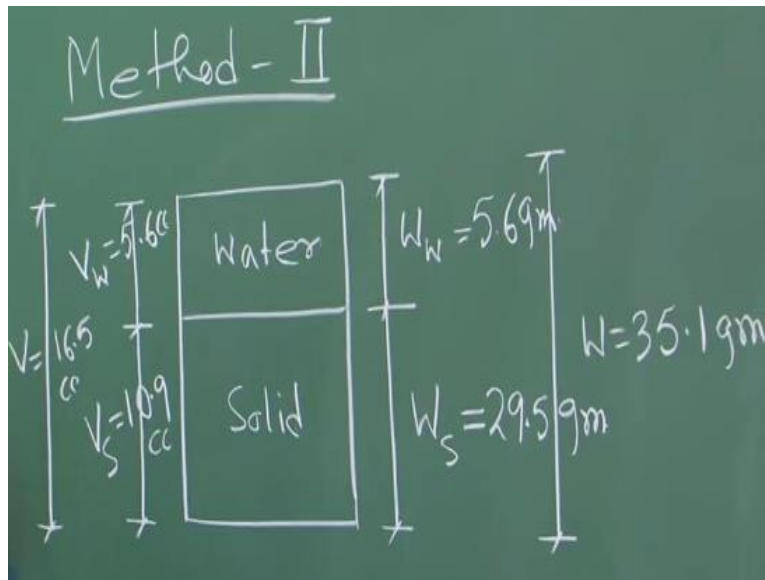 Method - II
V = 16.5 cc
V_W = 5.6 cc
V_S = 10.9 cc
Water
Solid
W_W = 5.6 gm.
W_S = 29.5 gm
W = 35.1 gm